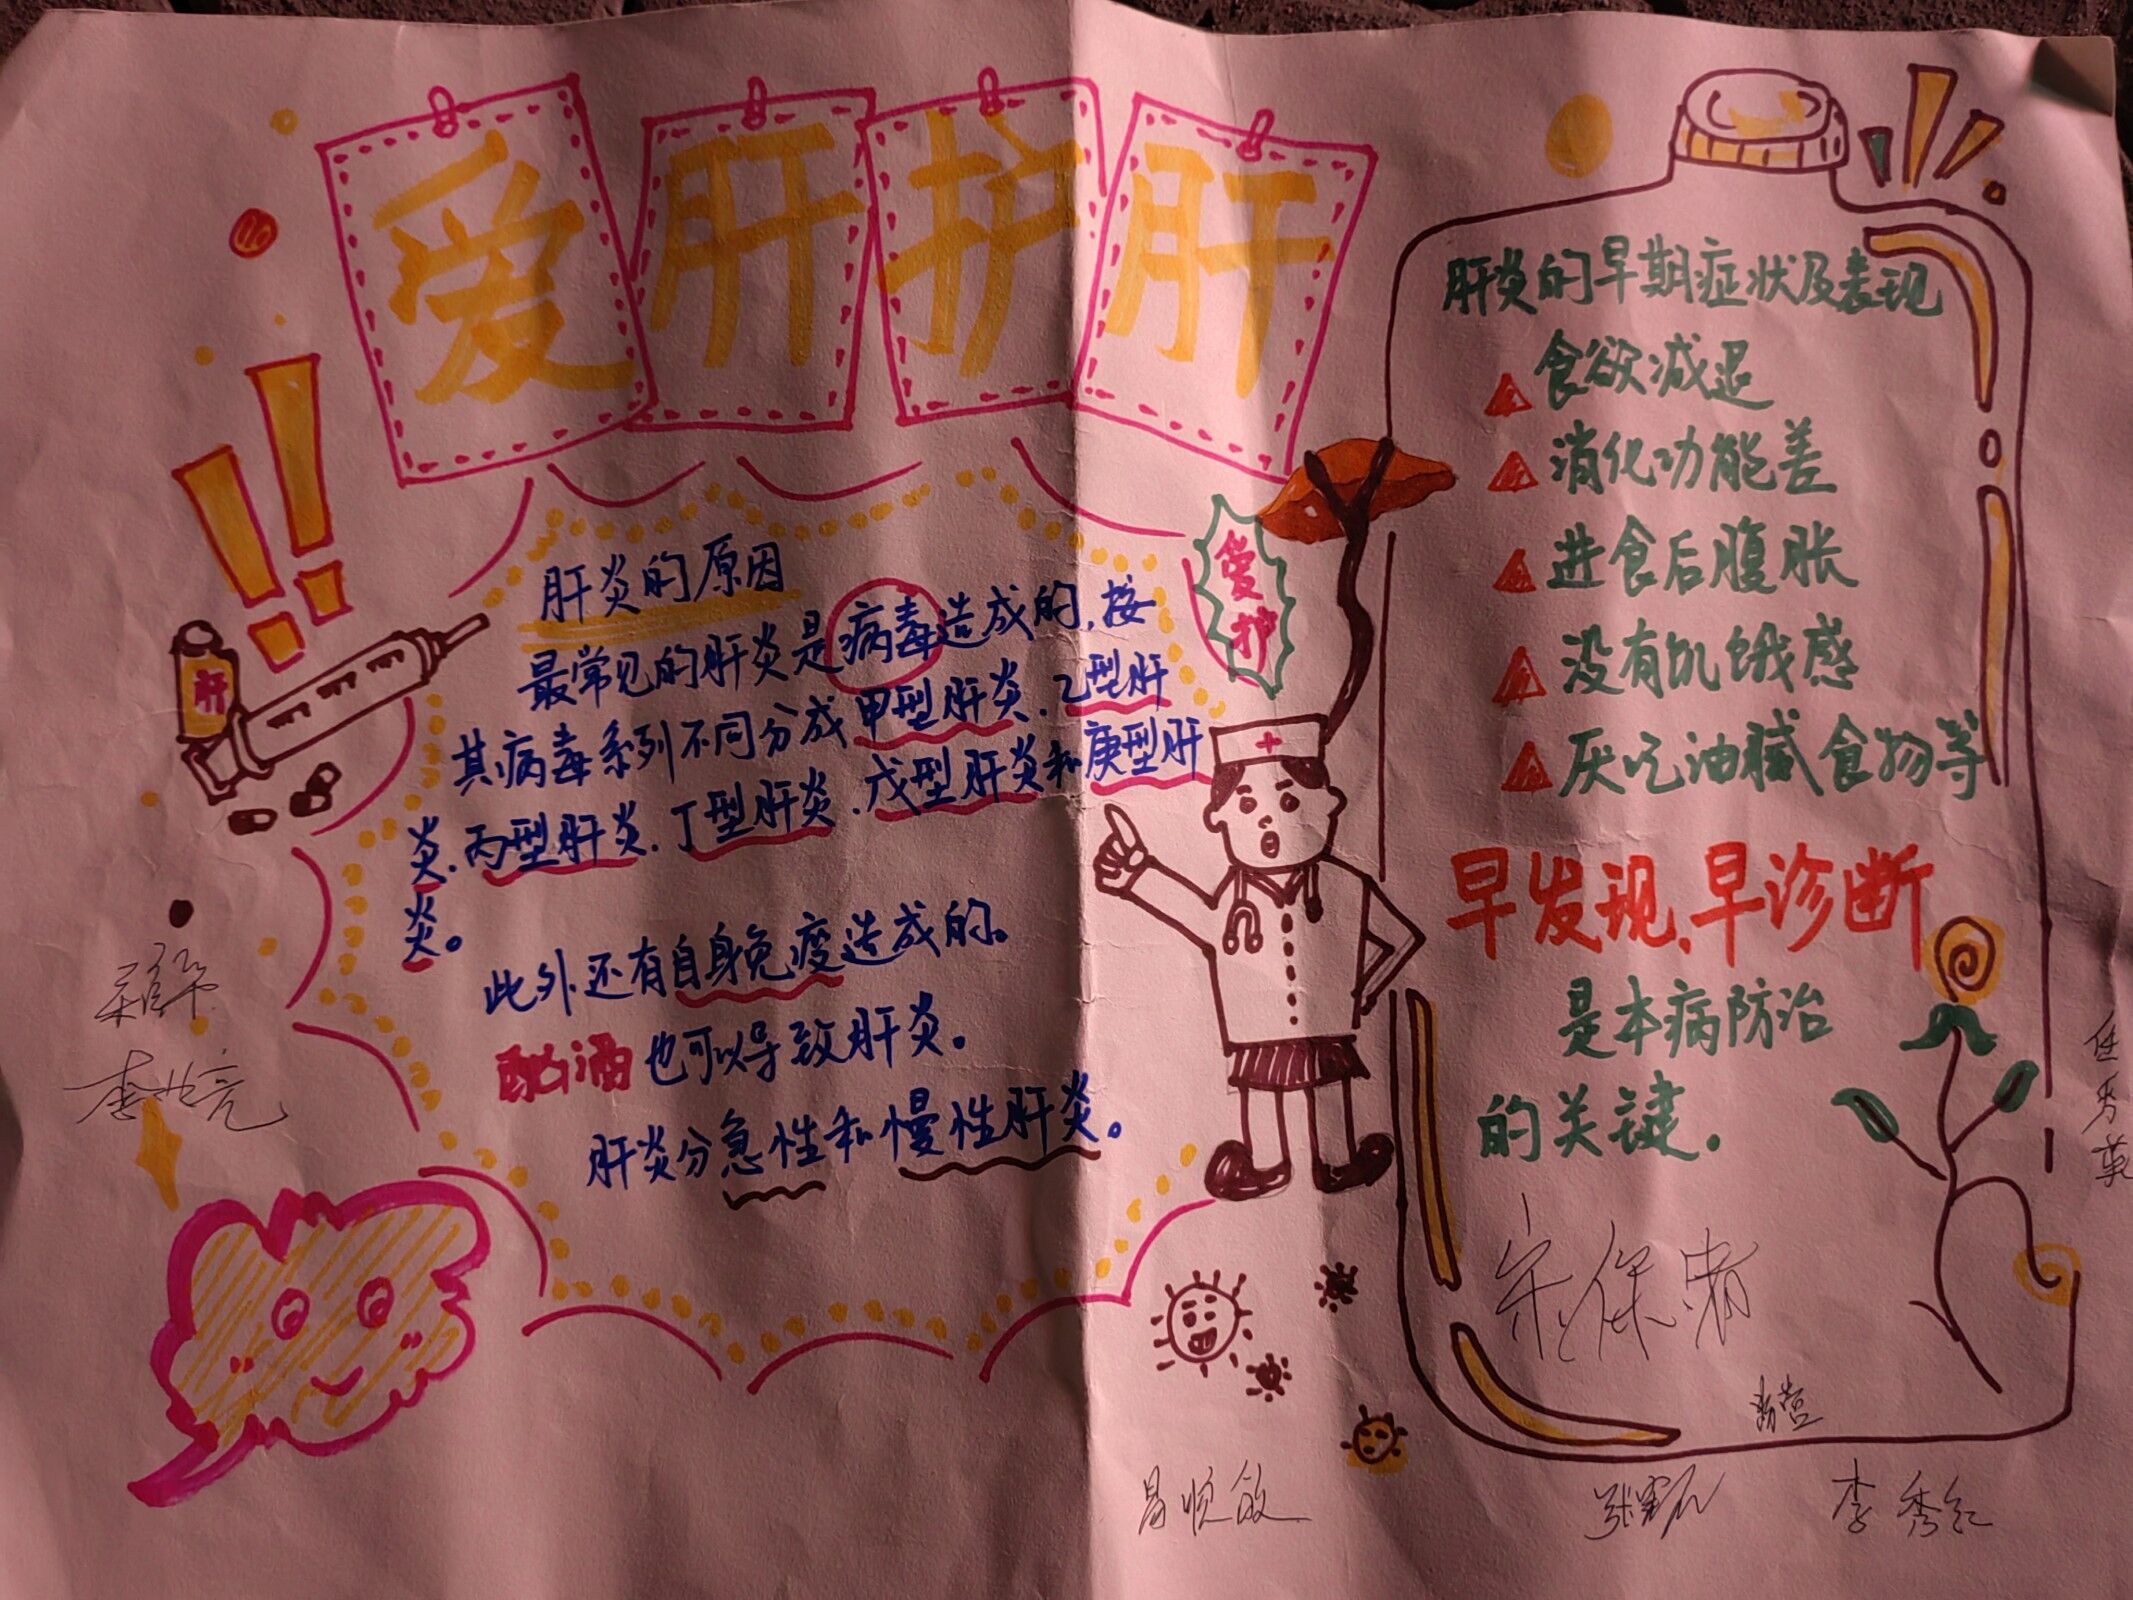 爱肝护肝
肝炎的原因
最常见的肝炎是病毒造成的,按
其病毒系列不同分成甲型肝炎.乙型肝
炎.丙型肝炎.丁型肝炎.戊型肝炎和庚型肝
炎。
此外还有自身免疫造成的。
酗酒也可以导致肝炎。
肝炎分急性和慢性肝炎。
肝
爱护
肝炎的早期症状及表现
食欲减退
消化功能差
进食后腹胀
没有饥饿感
厌吃油腻食物等
早发现,早诊断
是本病防治
的关键。
李秀红